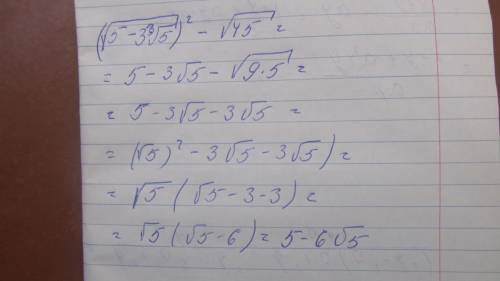 (√(5 - 3√5))² - √45 =
= 5 - 3√5 - √(9·5) =
= 5 - 3√5 - 3√5 =
= (√5)² - 3√5 - 3√5) =
= √5 (√5 - 3 - 3) =
= √5 (√5 - 6) = 5 - 6√5